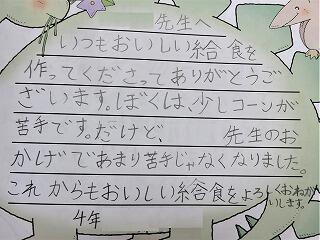 先生へ
いつもおいしい給食を
作ってくださってありがとうご
ざいます。ぼくは、少しコーンが
苦手です。だけど、　先生のお
かげであまり苦手じゃなくなりました。
これからもおいしい給食をよろしくおねが
いします。
4年